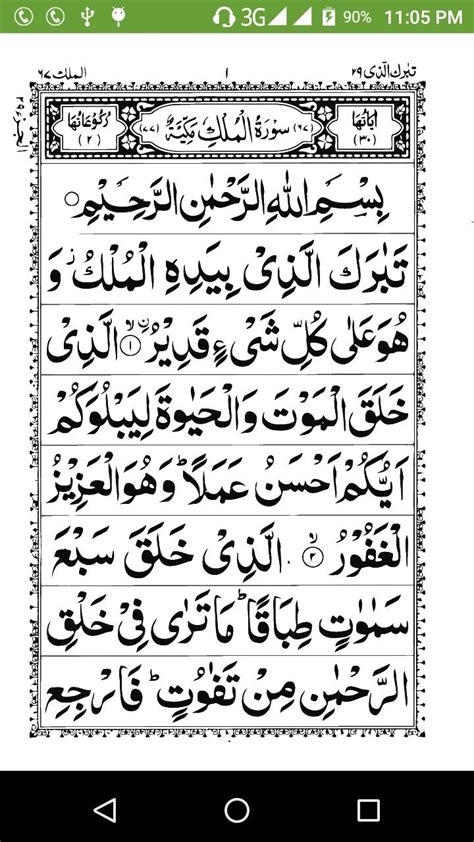 3G 90% 11:05 PM
تبٰرك الّذی ۲۹
۱
الملك ۶۷
اٰیَاتُهَا (۳۰)
(۶۷) سُوْرَةُ الْمُلْكِ مَكِّیَّةٌ (۷۷)
رُكُوْعَاتُهَا (۲)
بِسْمِ اللهِ الرَّحْمٰنِ الرَّحِیْمِ
تَبٰرَكَ الَّذِیْ بِیَدِهِ الْمُلْكُ ز وَ
هُوَ عَلٰی كُلِّ شَیْءٍ قَدِیْرُ ۙنِ ۱ الَّذِیْ
خَلَقَ الْمَوْتَ وَالْحَیٰوةَ لِیَبْلُوَكُمْ
اَیُّكُمْ اَحْسَنُ عَمَلًا ؕ وَهُوَ الْعَزِیْزُ
الْغَفُوْرُ ۙ ۲ الَّذِیْ خَلَقَ سَبْعَ
سَمٰوٰتٍ طِبَاقًا ؕ مَا تَرٰی فِیْ خَلْقِ
الرَّحْمٰنِ مِنْ تَفٰوُتٍ ؕ فَارْجِعِ